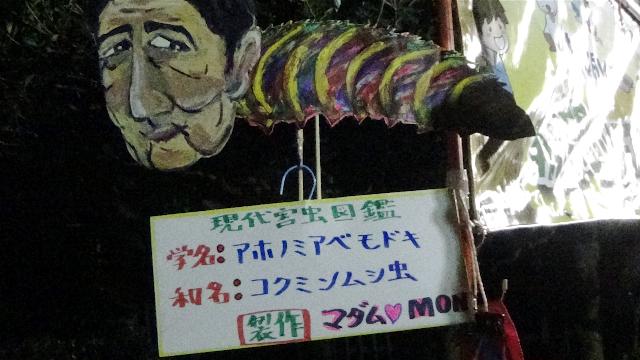 現代害虫図鑑
学名：アホノミアベモドキ
和名：コクミンムシ虫
製作 マダム♡MON